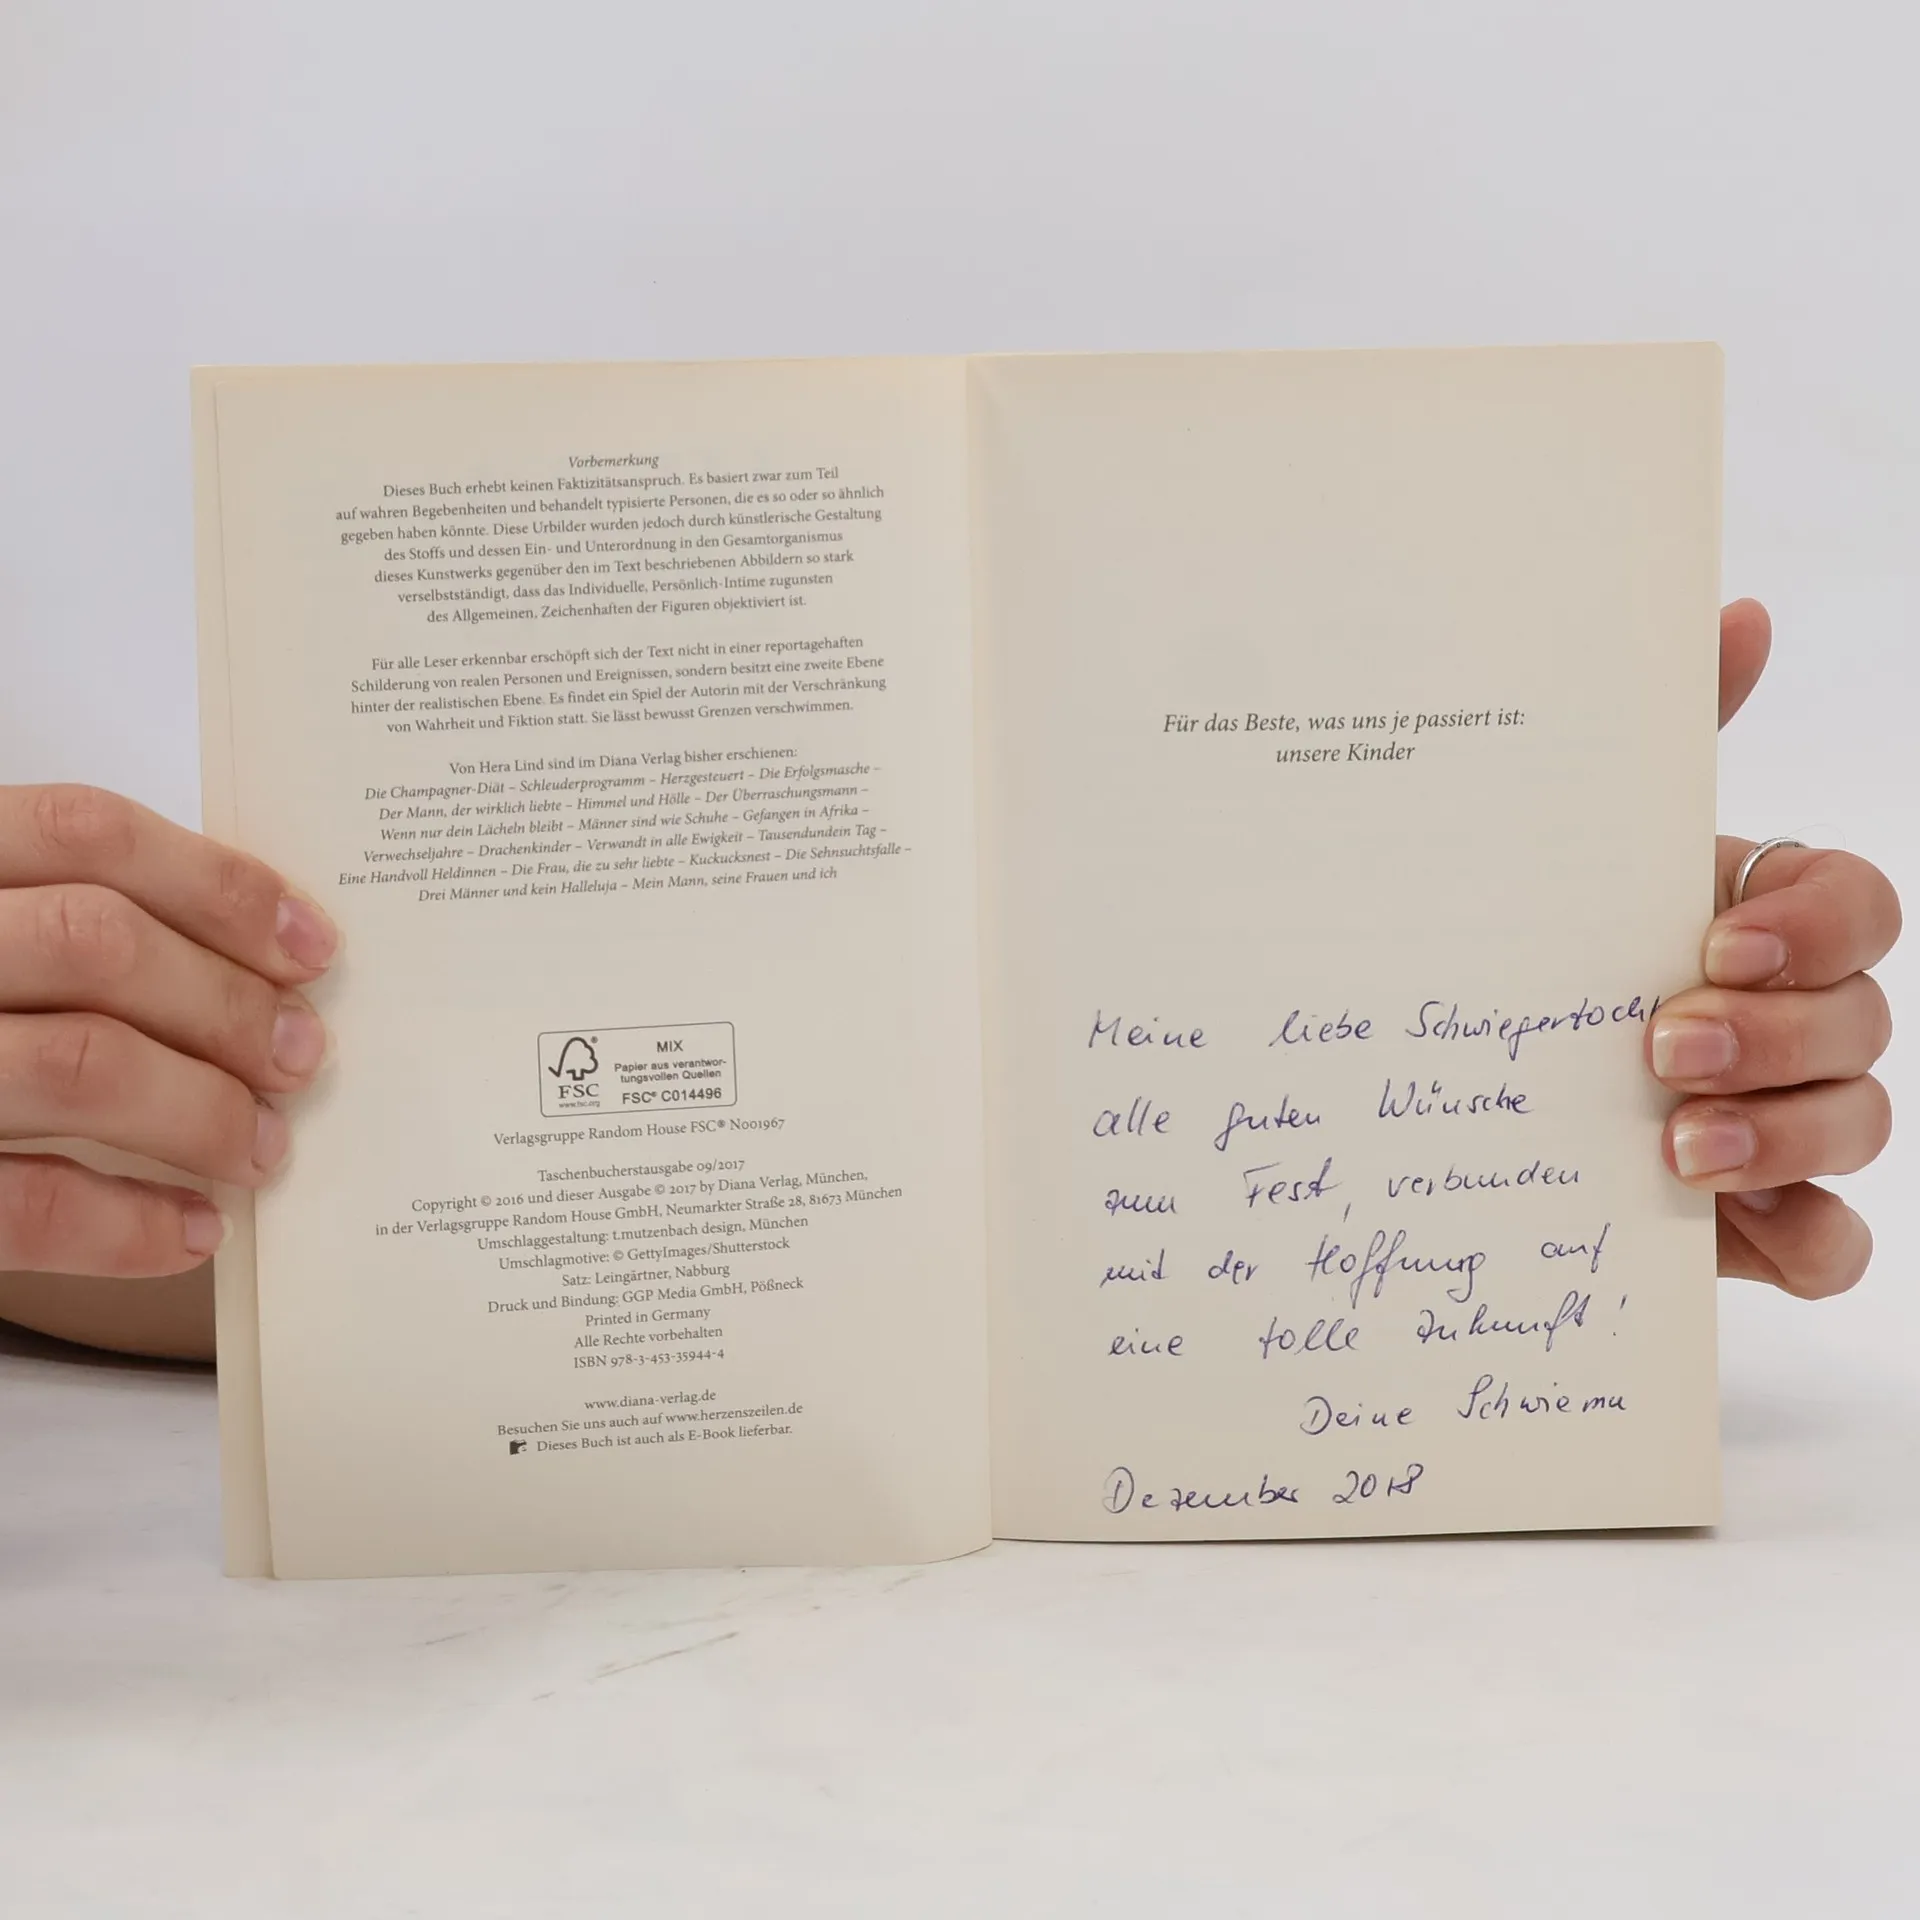 Vorbemerkung
Dieses Buch erhebt keinen Faktizitätsanspruch. Es basiert zwar zum Teil
auf wahren Begebenheiten und behandelt typisierte Personen, die es so oder so ähnlich
gegeben haben könnte. Diese Urbilder wurden jedoch durch künstlerische Gestaltung
des Stoffs und dessen Ein- und Unterordnung in den Gesamtorganismus
dieses Kunstwerks gegenüber den im Text beschriebenen Abbildern so stark
verselbstständigt, dass das Individuelle, Persönlich-Intime zugunsten
des Allgemeinen, Zeichenhaften der Figuren objektiviert ist.
Für alle Leser erkennbar erschöpft sich der Text nicht in einer reportagehaften
Schilderung von realen Personen und Ereignissen, sondern besitzt eine zweite Ebene
hinter der realistischen Ebene. Es findet ein Spiel der Autorin mit der Verschränkung
von Wahrheit und Fiktion statt. Sie lässt bewusst Grenzen verschwimmen.
Von Hera Lind sind im Diana Verlag bisher erschienen:
Die Champagner-Diät – Schleuderprogramm – Herzgesteuert – Die Erfolgsmasche –
Der Mann, der wirklich liebte – Himmel und Hölle – Der Überraschungsmann –
Wenn nur dein Lächeln bleibt – Männer sind wie Schuhe – Gefangen in Afrika –
Verwechseljahre – Drachenkinder – Verwandt in alle Ewigkeit – Tausendundein Tag –
Eine Handvoll Heldinnen – Die Frau, die zu sehr liebte – Kuckucksnest – Die Sehnsuchtsfalle –
Drei Männer und kein Halleluja – Mein Mann, seine Frauen und ich
MIX
Papier aus verantwor-
tungsvollen Quellen
FSC® C014496
FSC
www.fsc.org
Verlagsgruppe Random House FSC® N001967
Taschenbucherstausgabe 09/2017
Copyright © 2016 und dieser Ausgabe © 2017 by Diana Verlag, München,
in der Verlagsgruppe Random House GmbH, Neumarkter Straße 28, 81673 München
Umschlaggestaltung: t.mutzenbach design, München
Umschlagmotive: © GettyImages/Shutterstock
Satz: Leingärtner, Nabburg
Druck und Bindung: GGP Media GmbH, Pößneck
Printed in Germany
Alle Rechte vorbehalten
ISBN 978-3-453-35944-4
www.diana-verlag.de
Besuchen Sie uns auch auf www.herzenszeilen.de
Dieses Buch ist auch als E-Book lieferbar.
Für das Beste, was uns je passiert ist:
unsere Kinder
Meine liebe Schwiegertocht
alle guten Wünsche
zum Fest, verbunden
mit der Hoffnung auf
eine tolle Zukunft!
Deine Schwiemu
Dezember 2018